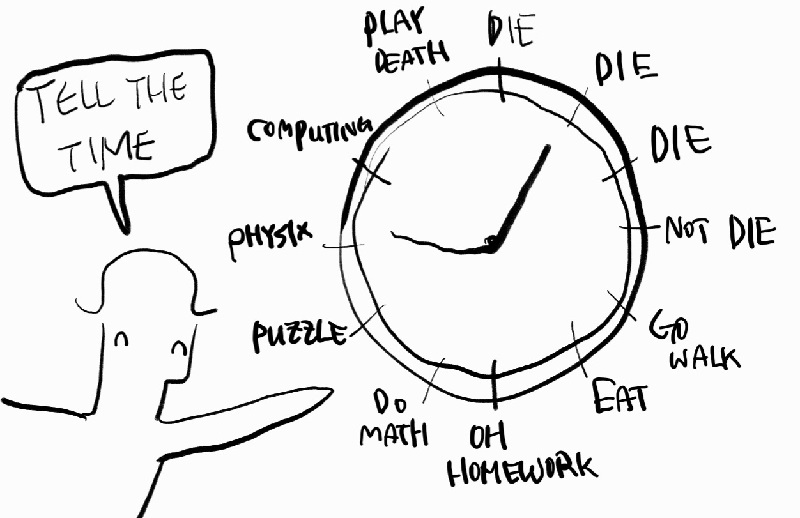 TELL THE
TIME
DIE
DIE
DIE
NOT DIE
GO
WALK
EAT
OH
HOMEWORK
DO
MATH
PUZZLE
PHYSIX
COMPUTING
PLAY
DEATH